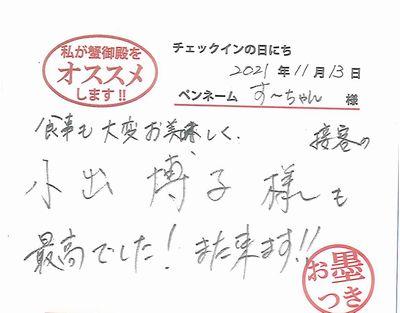 私が蟹御殿を
オススメ
します!!
チェックインの日にち
2021年11月13日
ペンネーム す〜ちゃん 様
食事も大変お美味しく、接客の
小出博子様も
最高でした!また来ます!!
お墨
つき